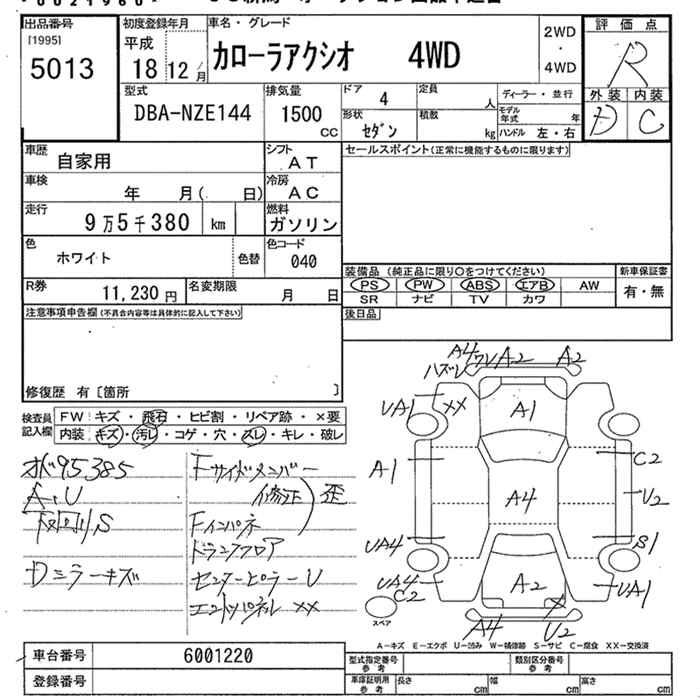 出品番号
[1995]
5013
初度登録年月
平成
18 12 月
車名・グレード
カローラアクシオ 4WD
2WD
・
4WD
評価点
R
外装 内装
D C
型式
DBA-NZE144
排気量
1500
cc
ドア
4
定員
人
ディーラー・並行
モデル年式 年
形状
セダン
積数
kg
ハンドル 左・右
車歴
自家用
シフト
AT
セールスポイント(正常に機能するものに限ります)
車検
年 月( 日)
冷房
AC
走行
9万5千380 km
燃料
ガソリン
色
ホワイト
色替
色コード
040
R券
11,230 円
名変期限
月 日
装備品(純正品に限り○をつけてください)
新車保証書
PS PW ABS エアB AW
有・無
SR ナビ TV カワ
後日品
注意事項申告欄(不具合内容等は具体的に記入して下さい)
修復歴 有〔箇所 〕
検査員記入欄
FW キズ・飛石・ヒビ割・リペア跡・×要
内装 キズ・汚レ・コゲ・穴・スレ・キレ・破レ
95385
A.U
下回りS
Dミラーキズ
Fサイドメンバー
修正
歪
Fインパネ
トランクフロア
センターピラーU
エンドパネル XX
A4 ワレ A2 A2
ハズレ
UA1
XX
A1
A1
C2
A4
U2
UA4
S1
UA4
C2
A2
X
UA1
スペア
A4 U2
A-キズ E-エクボ U-凹み W-補修跡 S-サビ C-腐食 XX-交換済
車台番号
6001220
登録番号
型式指定番号
参考
類別区分番号
参考
車庫証明用
参考
長さ cm
幅 cm
高さ cm